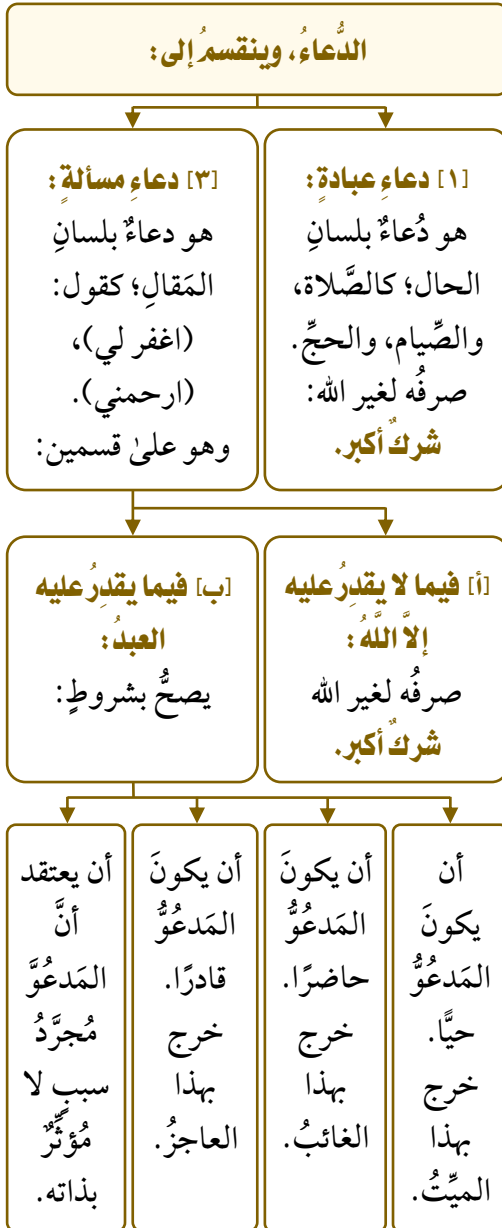 الدُّعاءُ، وينقسمُ إلى:
[١] دعاءِ عبادةٍ:
هو دُعاءٌ بلسانِ
الحال؛ كالصَّلاة،
والصِّيام، والحجِّ.
صرفُه لغير الله:
شركٌ أكبر.
[٣] دعاءِ مسألةٍ:
هو دعاءٌ بلسانِ
المَقالِ؛ كقول:
(اغفر لي)،
(ارحمني).
وهو علىٰ قسمين:
[أ] فيما لا يقدرُ عليه
إلاَّ اللَّهُ:
صرفُه لغير الله
شركٌ أكبر.
[ب] فيما يقدِرُ عليه
العبدُ:
يصحُّ بشروطٍ:
أن
يكونَ
المَدعُوُّ
حيًّا.
خرج
بهذا
الميِّتُ.
أن يكونَ
المَدعُوُّ
حاضرًا.
خرج
بهذا
الغائبُ.
أن يكونَ
المَدعُوُّ
قادرًا.
خرج
بهذا
العاجزُ.
أن يعتقد
أنَّ
المَدعُوَّ
مُجرَّدُ
سببٍ لا
مُؤثِّرٌ
بذاته.